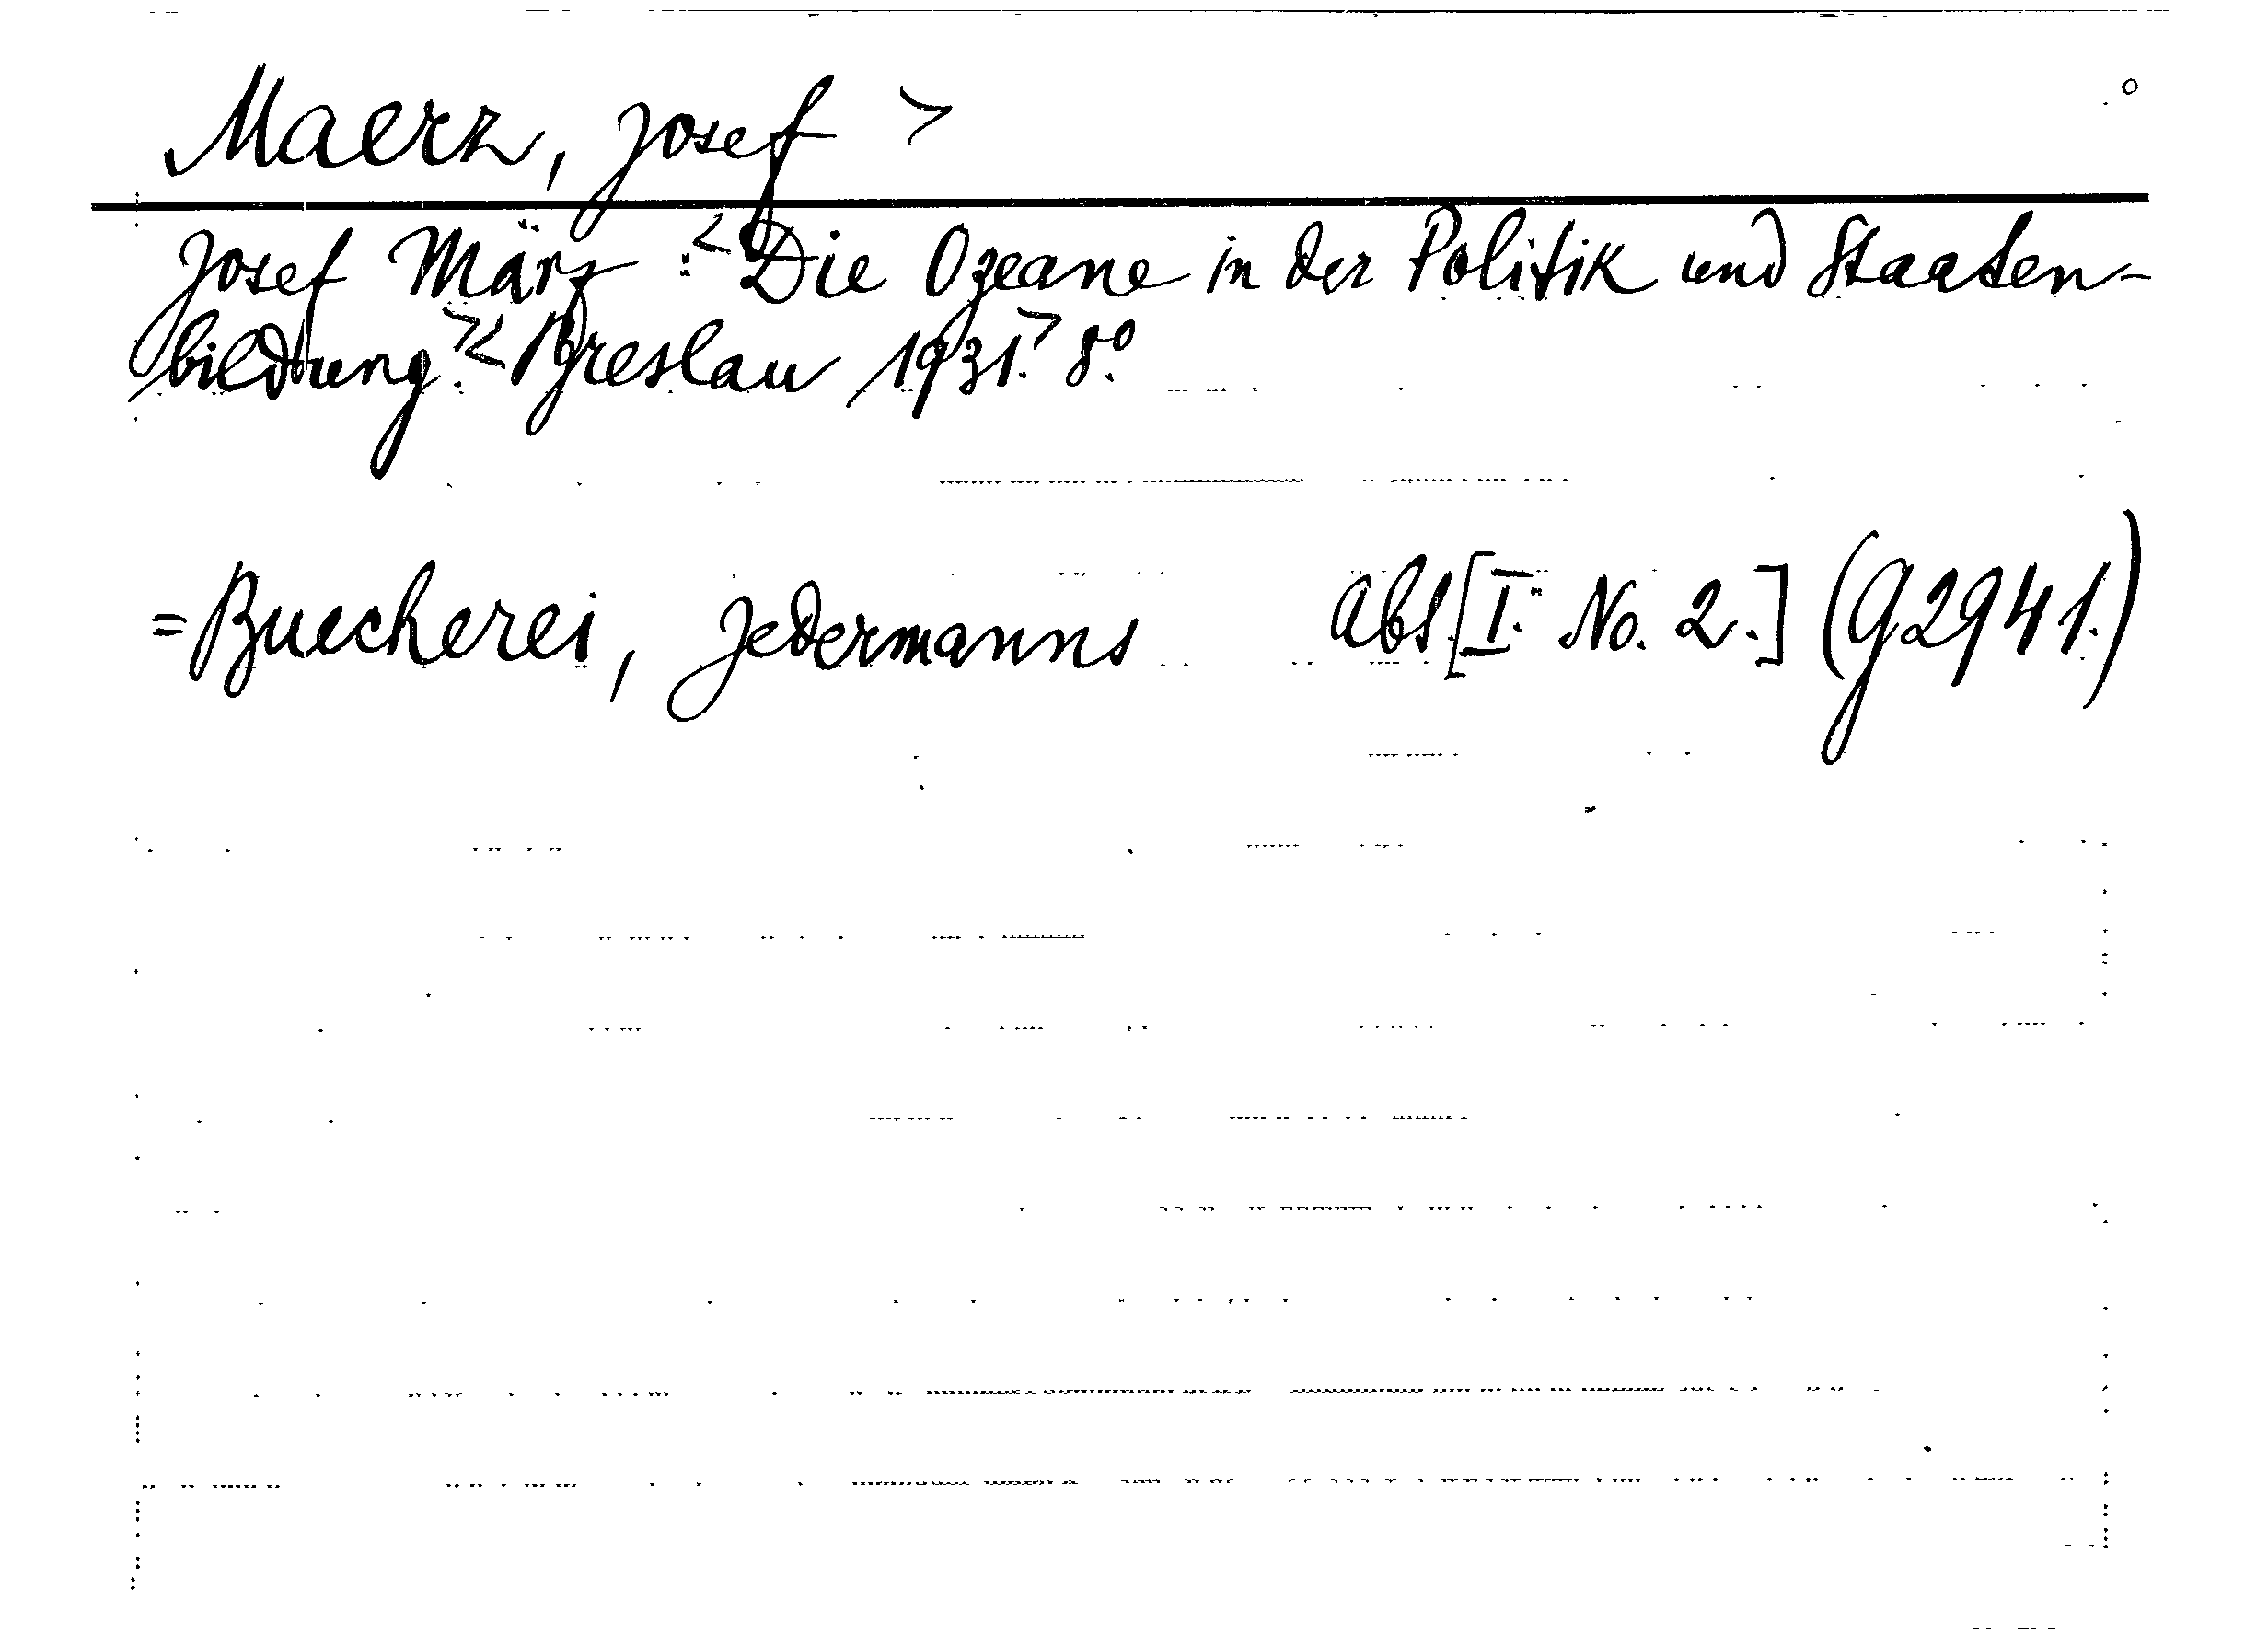 Maerz, Josef >
Josef März : < Die Ozeane in der Politik und Staaten-
bildung. > < Breslau 1931. > 8°.
= Buecherei, Jedermanns Abt. [I. No. 2.] (G2941.)